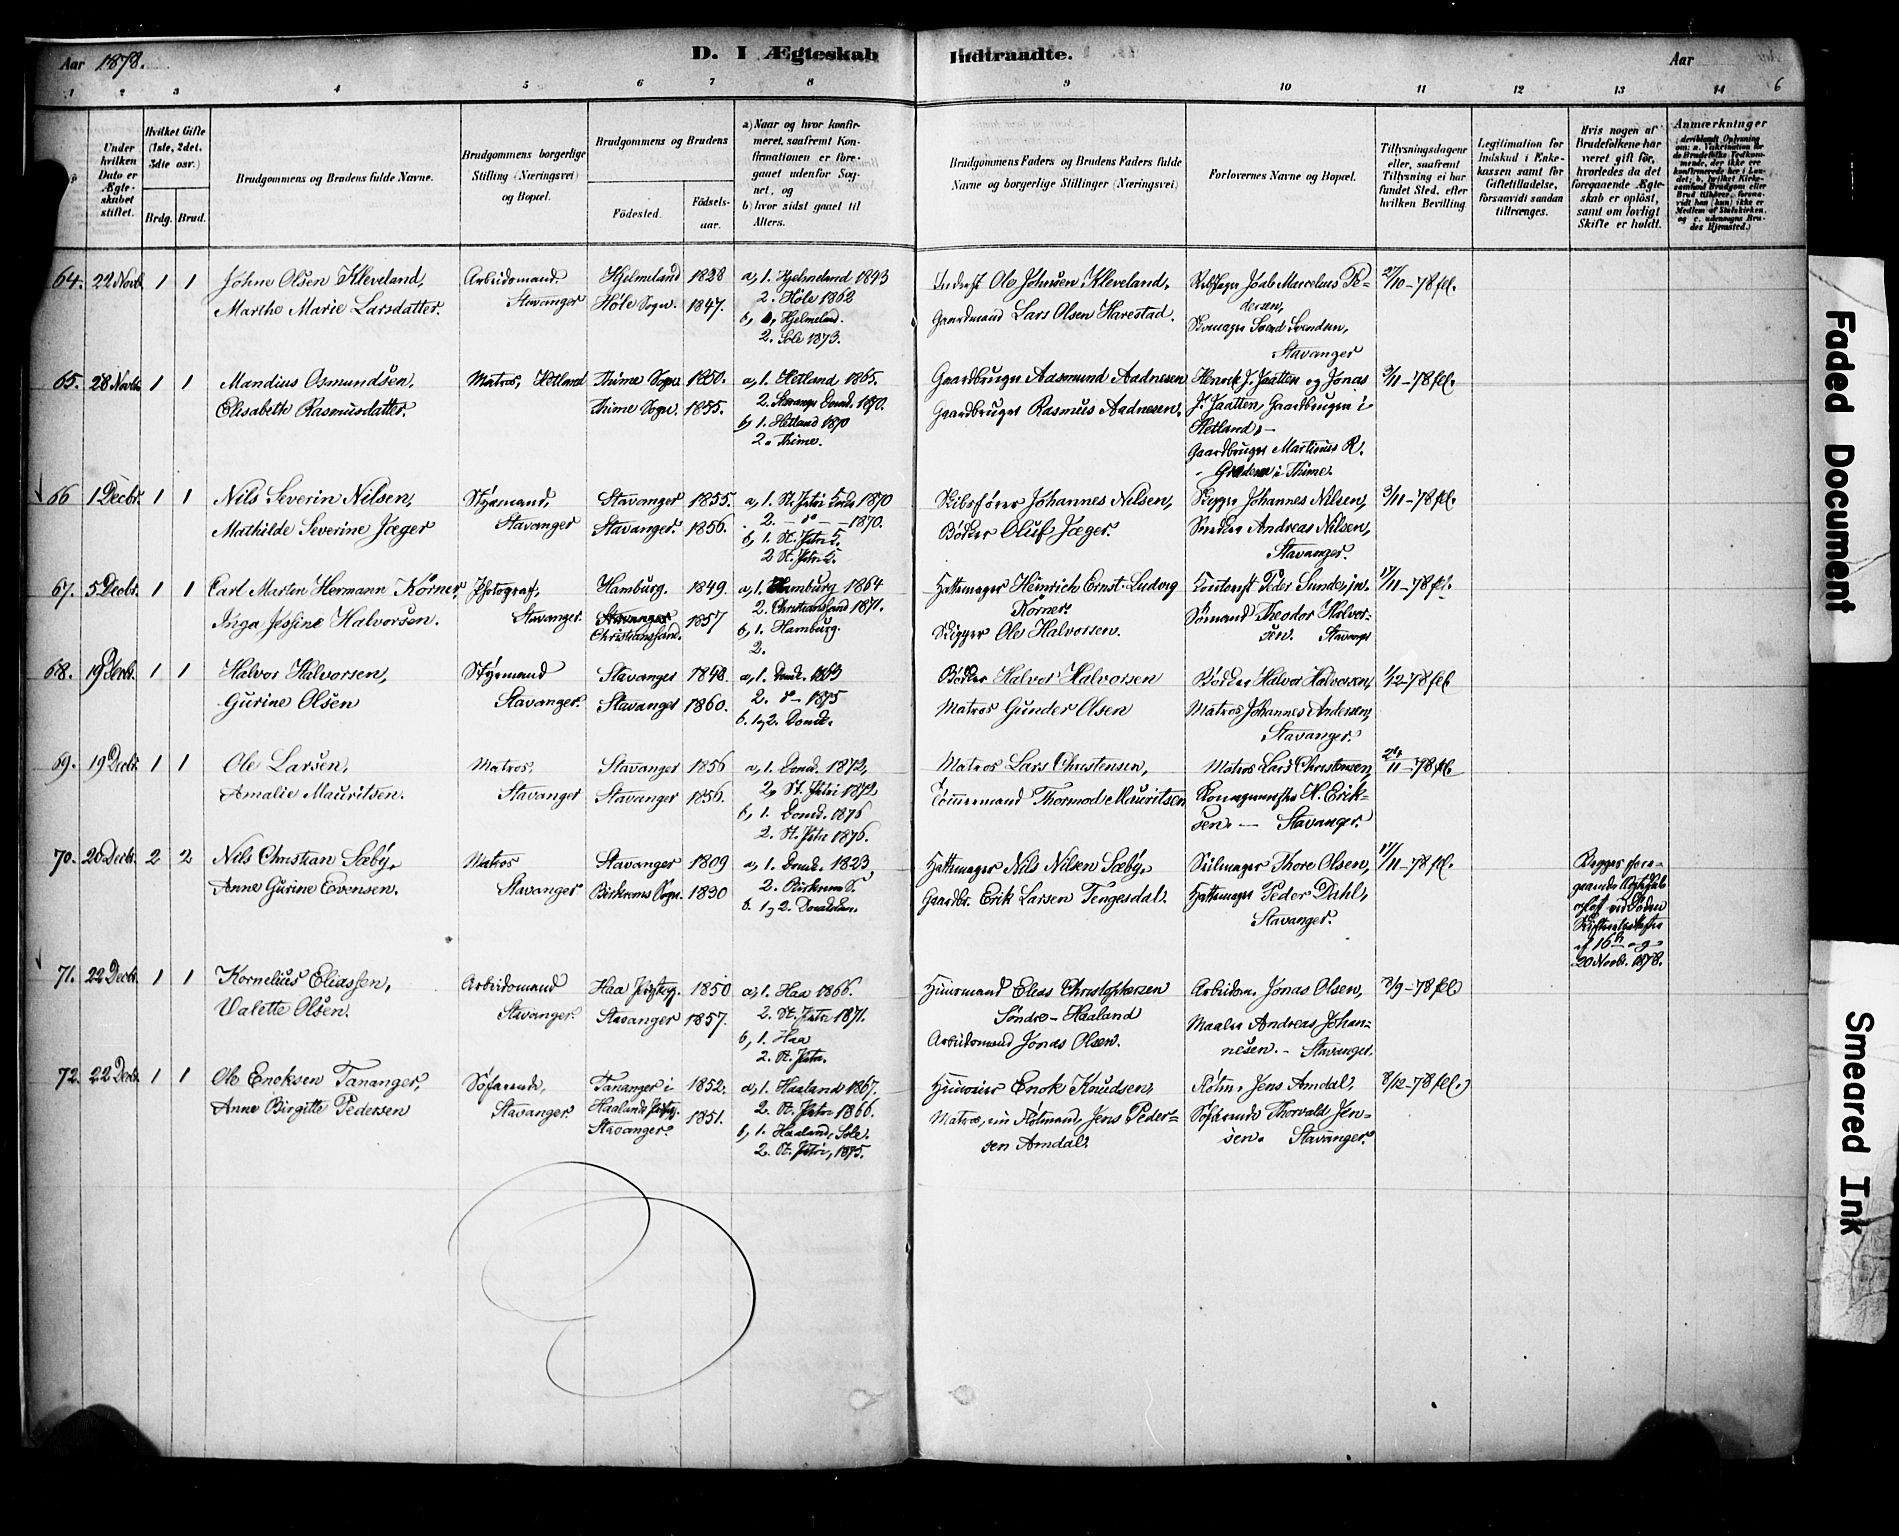 Aar 1878. D. I Ægteskab Indtraadte. Aar 6
1 2 3 4 5 6 7 8 9 10 11 12 13 14
Under hvilken Dato er Ægte-skabet stiftet.
Hvilket Gifte (1ste, 2det, 3die osv.)
Brdg. Brud.
Brudgommens og Brudens fulde Navne.
Brudgommens borgerlige Stilling (Næringsvei) og Bopæl.
Brudgommens og Brudens
Fødested.
Fødsels-aar.
a) Naar og hvor konfir-meret, saafremt Kon-firmationen er fore-gaaet udenfor Sog-net, og
b) hvor sidst gaaet til Alters.
Brudgommens Faders og Brudens Faders fulde Navne og borgerlige Stillinger (Næringsvei)
Forlovernes Navne og Bopæl.
Tillysningsdagene eller, saafremt Tillysning ei har fundet Sted, efter hvilken Bevilling
Legitimation for Indskud i Enke-kassen samt for Giftetilladelse, forsaavidt saadan tiltrænges.
Hvis nogen af Brudefolkene har været gift før, hvorledes da det foregaaende Ægte-skab er opløst, samt om lovligt Skifte er holdt.
Anmærkninger
64. 22 Novb. 1 1 Johne Olsen Kleveland, Arbeidsmand. Hjelmeland 1828 a, 1. Hjelmeland 1843 Inderst Ole Johnsen Kleveland, 27/10–78 fkl.
Marthe Marie Larsdatter. Stavanger Höle Sogn. 1847. 2. Höle 1862 Gaardmand Lars Olsen Harestad. Pedersen,
b, 1, Hjelmeland. Skomager Svend Svendsen,
2. Sole 1873. Stavanger
65. 28 Novbr. 1 1 Mandius Osmundsen, Matros, Hetland Thime Sogn 1850. a, 1. Hetland 1865. Gaardbruger Aasmund Aadnesen Henrik J. Jaatten og Jonas 3/11–78 fkl.
Elisabeth Rasmusdatter. Thime Sogn. 1855. 2. Stavanger Domk. 1870. Gaardbruger Rasmus Aadnesen. J. Jaatten, Gaardbrugere i
b, 1. Hetland 1870 Hetland,
2. Thime. Gaardbruger Martinus R.
i Thime.
66 1 Decbr. 1 1 Nils Severin Nilsen, Styrmand, Stavanger 1855. a, 1. St. Petri 1870 Skibsfører Johannes Nilsen, Skipper Johannes Nilsen, 3/11–78 fkl.
Mathilde Severine Jæger Stavanger Stavanger. 1856. 2. – do – 1870. Bødker Oluf Jæger. Snedker Andreas Nilsen,
b, 1. St. Petri Stavanger.
2 St. Petri
67. 5 Decbr. 1 1 Carl Martin Hermann Körner, Photograf, Hamburg. 1849. a, 1. Hamburg 1864 Hattemager Heinrich Ernst Ludvig Peder Sunde, jr. 17/11–78 fkl.
Inga Jessine Halvorsen. Stavanger. Stavanger Christianssand. 1857 2. Christianssand 1871. Körner. Sömand Theodor Halvor-
b, 1. Hamburg. Skipper Ole Halvorsen. sen. Stavanger
2.
68. 19 Decbr. 1 1 Halvor Halvorsen, Styrmand Stavanger 1848. a, 1. Domk. 1863 Bödker Halvor Halvorsen Bödker Halvor Halvorsen, 1/12–78 fkl.
Gurine Olsen Stavanger. Stavanger 1860. 2. do – 1875 Matros Gunder Olsen Matros Johannes Andersen,
b. 1 og 2. Domk. Stavanger.
69. 19 Decbr. 1 1 Ole Larsen, Matros, Stavanger 1856 a, 1. Domk. 1872, Matros Lars Christensen, Matros Lars Christensen, 24/11–78 fkl.
Amalie Mauritsen. Stavanger Stavanger 1856. 2, St. Petri 1872 Tømmermand Thormod Mauritsen N. Erik-
b, 1. Domk. 1876 sen. – Stavanger.
2. St. Petri 1876.
70. 20 Decbr. 2 2 Nils Christian Sæby, Matros Stavanger 1809 a, 1. Domk. 1823 Hattemager Nils Nilsen Sæby, Seilmager Thore Olsen, 17/11–78 fkl. Begges fore-
Anne Gurine Evensen. Stavanger Birkrems Sogn. 1830 2. Birkrems S. Gaardbr. Erik Larsen Tengesdal. Hattemager Peder Dahl, gaaende Ægteskab
b. 1 og 2. Domkirken. Stavanger. opløst ved Døden
Skifteretsattester
af 16de og
20 Novbr. 1878.
71. 22 Decbr. 1 1 Kornelius Eliassen, Arbeidsmand Haa Prgjæld. 1850 a, 1. Haa 1866. Huusmand Elias Christophersen Arbeidsm. Jonas Olsen, /9–78 fkl.
Valette Olsen. Stavanger. Stavanger 1857. 2. St. Petri 1871. Söndre-Haaland Maaler Andreas Johan-
b, 1. Haa Arbeidsmand Jonas Olsen. nesen. – Stavanger.
2. St. Petri.
72. 22 Decbr. 1 1 Ole Enoksen Tananger, Söfarende, Tananger i 1852. a, 1. Haaland 1867. Enok Knudsen, Jens Amdal, 8/12–78 fkl.
Anne Birgitte Pedersen Stavanger. Haalands Prgj. Stavanger. 1851. 2. St. Petri 1866. Matros, Jens Peder- Söfarende Thorvald Jen-
b, 1. Haaland, Sole. sen Amdal. sen. Stavanger.
2. St. Petri, 1875.
Faded Document
Smeared Ink